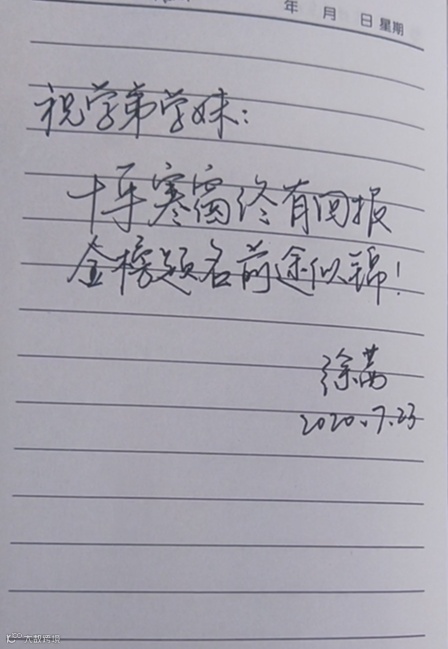 年 月 日 星期
祝学弟学妹:
十年寒窗终有回报
金榜题名前途似锦!
徐茜
2020.7.23
大数跨境